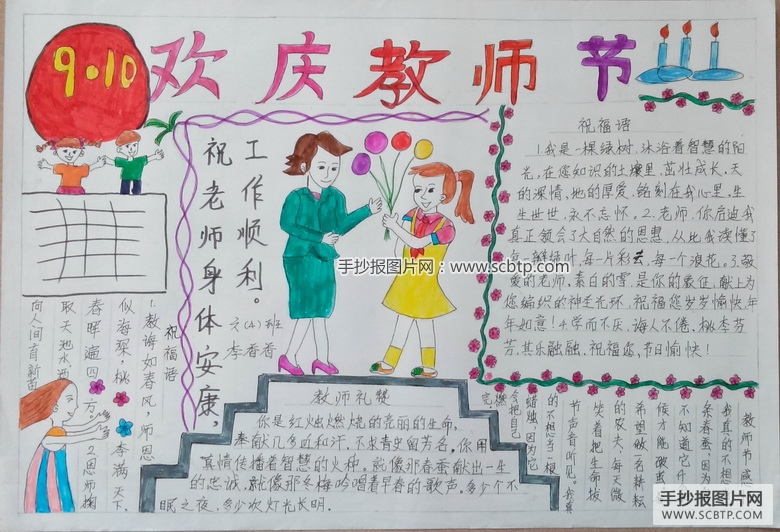 9·10
欢庆教师节
祝老师身体安康，
工作顺利。
六(4)班
李香香
祝福语
1.我是一棵绿树，沐浴着智慧的阳
光，在您知识的土壤里，茁壮成长，天
的深情，地的厚爱，铭刻在我心里，生
生世世，永不忘怀。2.老师，你启迪我
真正领会了大自然的思想，从此我读懂了
每一瓣绿叶，每一片彩云，每一个浪花。3.敬
爱的老师，素白的雪，是你的象征，献上为
您编织的神圣光环，祝福您岁岁愉快年
年如意！4.学而不厌，诲人不倦，桃李芬
芳，其乐融融，祝福您，节日愉快！
手抄报图片网：www.scbtp.com
祝福语
1.教诲如春风，师恩
似海深，桃李满天下，
春晖遍四方。2.恩师掬
取天池水，洒
向人间育新苗
教师礼赞
你是红烛燃烧的亮丽的生命，
奉献几多血和汗，不求青史留芳名，你用
真情传播着智慧的火种。就像那春蚕献出一生
的忠诚，就像那冬梅吟唱着早春的歌声。多少个不
眠之夜，多少次灯光长明。
教师节感
我真的不想
条春蚕，因为
不知道它什
候才能破茧
希望做一名耕耘
的农夫，每天微
笑着把生命拔
节声音听见。我真
的不想当一根
蜡烛，因为它
会把自己
手抄报图片网
WWW.SCBTP.COM